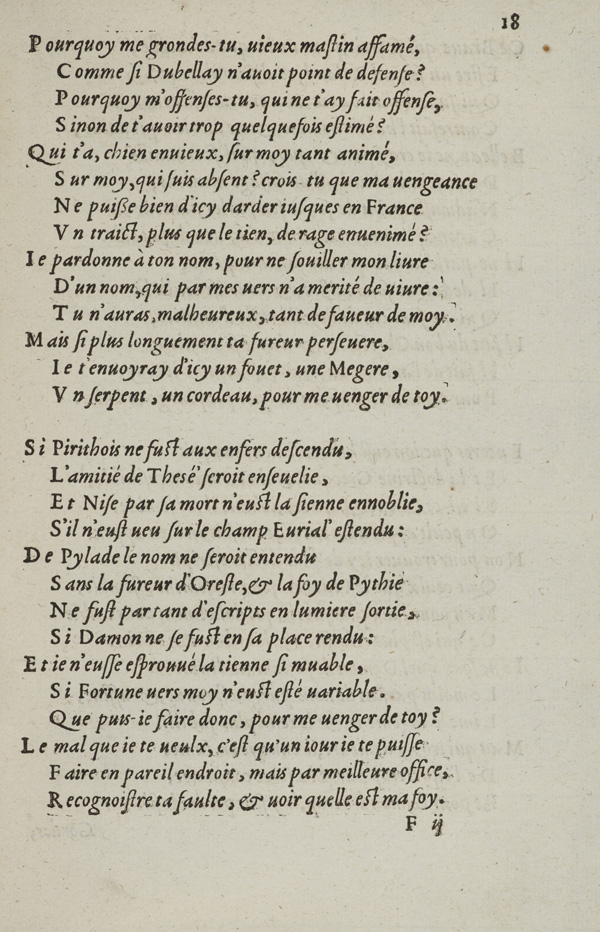 18
Pourquoy me grondes-tu, uieux maſtin affamé,
Comme ſi Dubellay n'auoit point de defenſe?
Pourquoy m'offenſes-tu, qui ne t'ay fait offenſe,
Sinon de t'auoir trop quelquefois eſtimé?
Qui t'a, chien enuieux, ſur moy tant animé,
Sur moy, qui ſuis abſent? crois-tu que ma uengeance
Ne puiſſe bien d'icy darder iuſques en France
Vn traict, plus que le tien, de rage enuenimé?
Ie pardonne à ton nom, pour ne ſouiller mon liure
D'un nom, qui par mes uers n'a merité de uiure:
Tu n'auras, malheureux, tant de faueur de moy.
Mais ſi plus longuement ta fureur perſeuere,
Ie t'enuoyray d'icy un fouet, une Megere,
Vn ſerpent, un cordeau, pour me uenger de toy.
Si Pirithois ne fuſt aux enfers deſcendu,
L'amitié de Theſé' ſeroit enſeuelie,
Et Niſe par ſa mort n'euſt la ſienne ennoblie,
S'il n'euſt ueu ſur le champ Eurial' eſtendu:
De Pylade le nom ne ſeroit entendu
Sans la fureur d'Oreſte, & la foy de Pythie
Ne fuſt par tant d'eſcripts en lumiere ſortie,
Si Damon ne ſe fuſt en ſa place rendu:
Et ie n'euſſe eſprouué la tienne ſi muable,
Si Fortune uers moy n'euſt eſté uariable.
Que puis-ie faire donc, pour me uenger de toy?
Le mal que ie te ueulx, c'eſt qu'un iour ie te puiſſe
Faire en pareil endroit, mais par meilleure office,
Recognoiſtre ta faulte, & uoir quelle eſt ma foy.
F ij